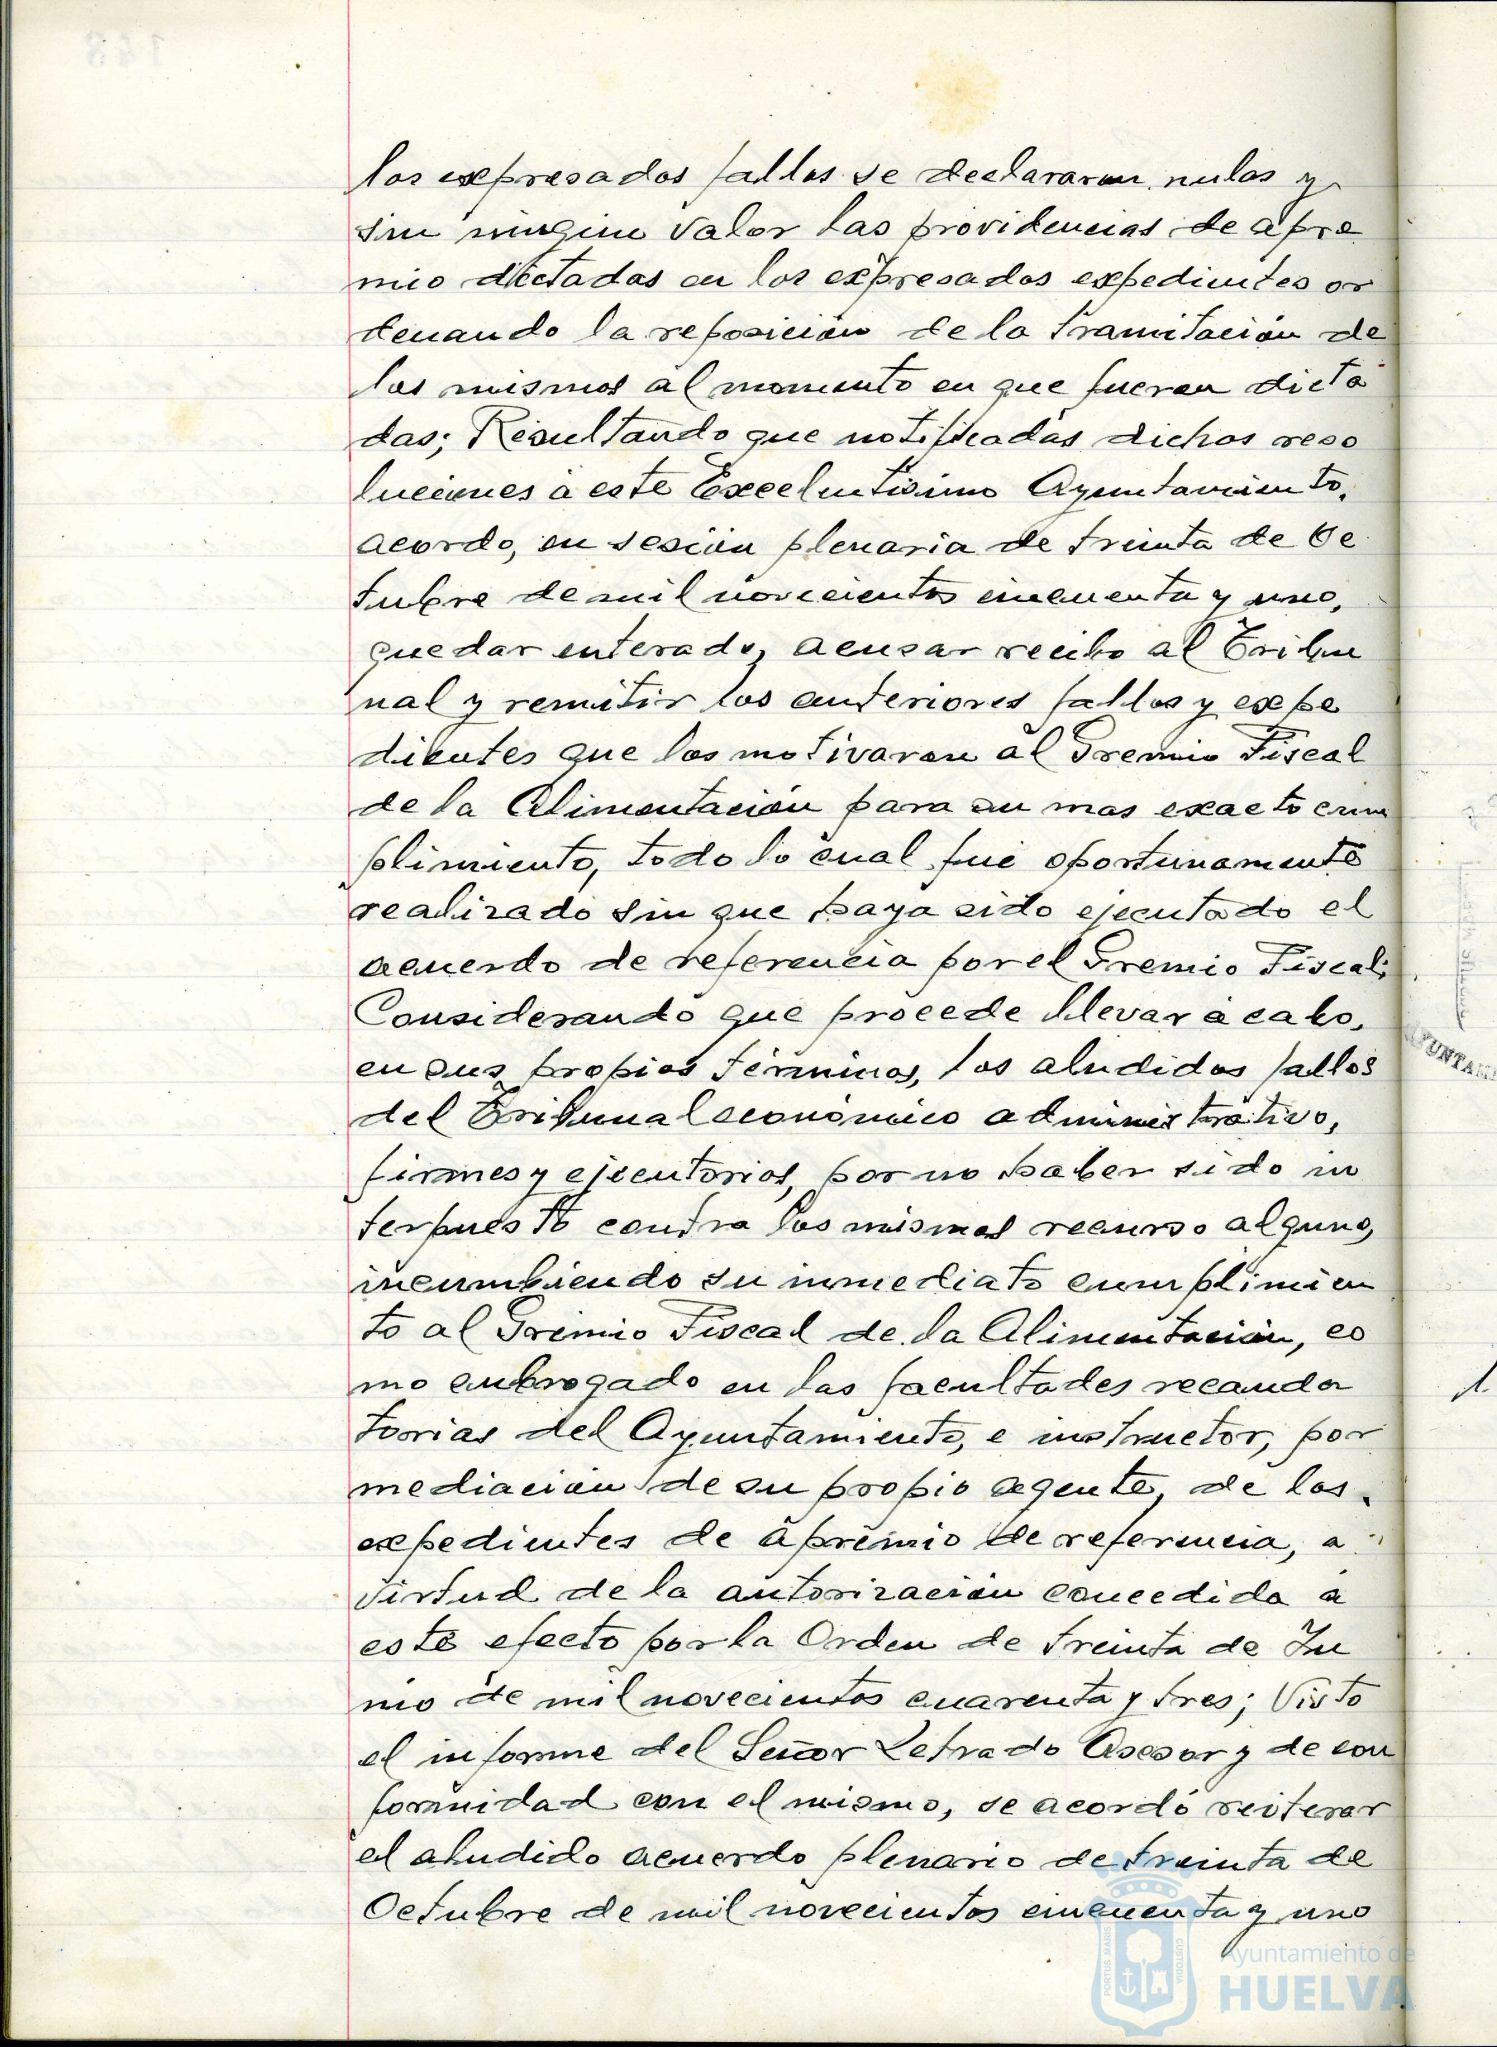 los expresados fallos se declararon nulos y
sin ningun valor las providencias de apre
mio dictadas en los expresados expedientes or
denando la reposición de la tramitación de
los mismos al momento en que fueron dicta
das; Resultando que notificadas dichas reso
luciones a este Excelentisimo Ayuntamiento,
acordo, en sesión plenaria de treinta de Oc
tubre de mil novecientos cincuenta y uno,
quedar enterado, acusar recibo al Tribu
nal y remitir los anteriores fallos y expe
dientes que los motivaron al Gremio Fiscal
de la Alimentación para su mas exacto cum
plimiento, todo lo cual fué oportunamente
realizado sin que haya sido ejecutado el
acuerdo de referencia por el Gremio Fiscal;
Considerando que procede llevar a cabo,
en sus propios términos, los aludidos fallos
del Tribunal económico administrativo,
firmes y ejecutorios, por no haber sido in
terpuesto contra los mismos recurso alguno,
incumbiendo su inmediato cumplimien
to al Gremio Fiscal de la Alimentación, co
mo subrogado en las facultades recauda
torias del Ayuntamiento, e instructor, por
mediación de su propio agente, de los
expedientes de apremio de referencia, a
virtud de la autorización concedida a
este efecto por la Orden de treinta de Ju
nio de mil novecientos cuarenta y tres; Visto
el informe del Señor Letrado Asesor y de con
formidad con el mismo, se acordó reiterar
el aludido acuerdo plenario de treinta de
Octubre de mil novecientos cincuenta y uno
PORTUS MARIS
CUSTODIA
Ayuntamiento de
HUELVA